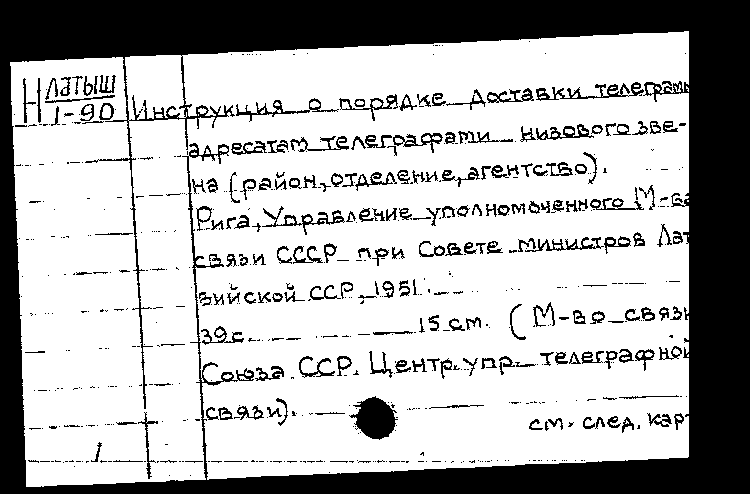 Н Латыш
1-90
Инструкция о порядке доставки телеграмм
адресатам телеграфами низового зве-
на (район, отделение, агентство).
Рига, Управление уполномоченного М-ва
связи СССР при Совете министров Лат
вийской ССР, 1951.
39с. 15 см. (М-во связи
Союза ССР. Центр. упр. телеграфной
связи).
см. след. карт
1